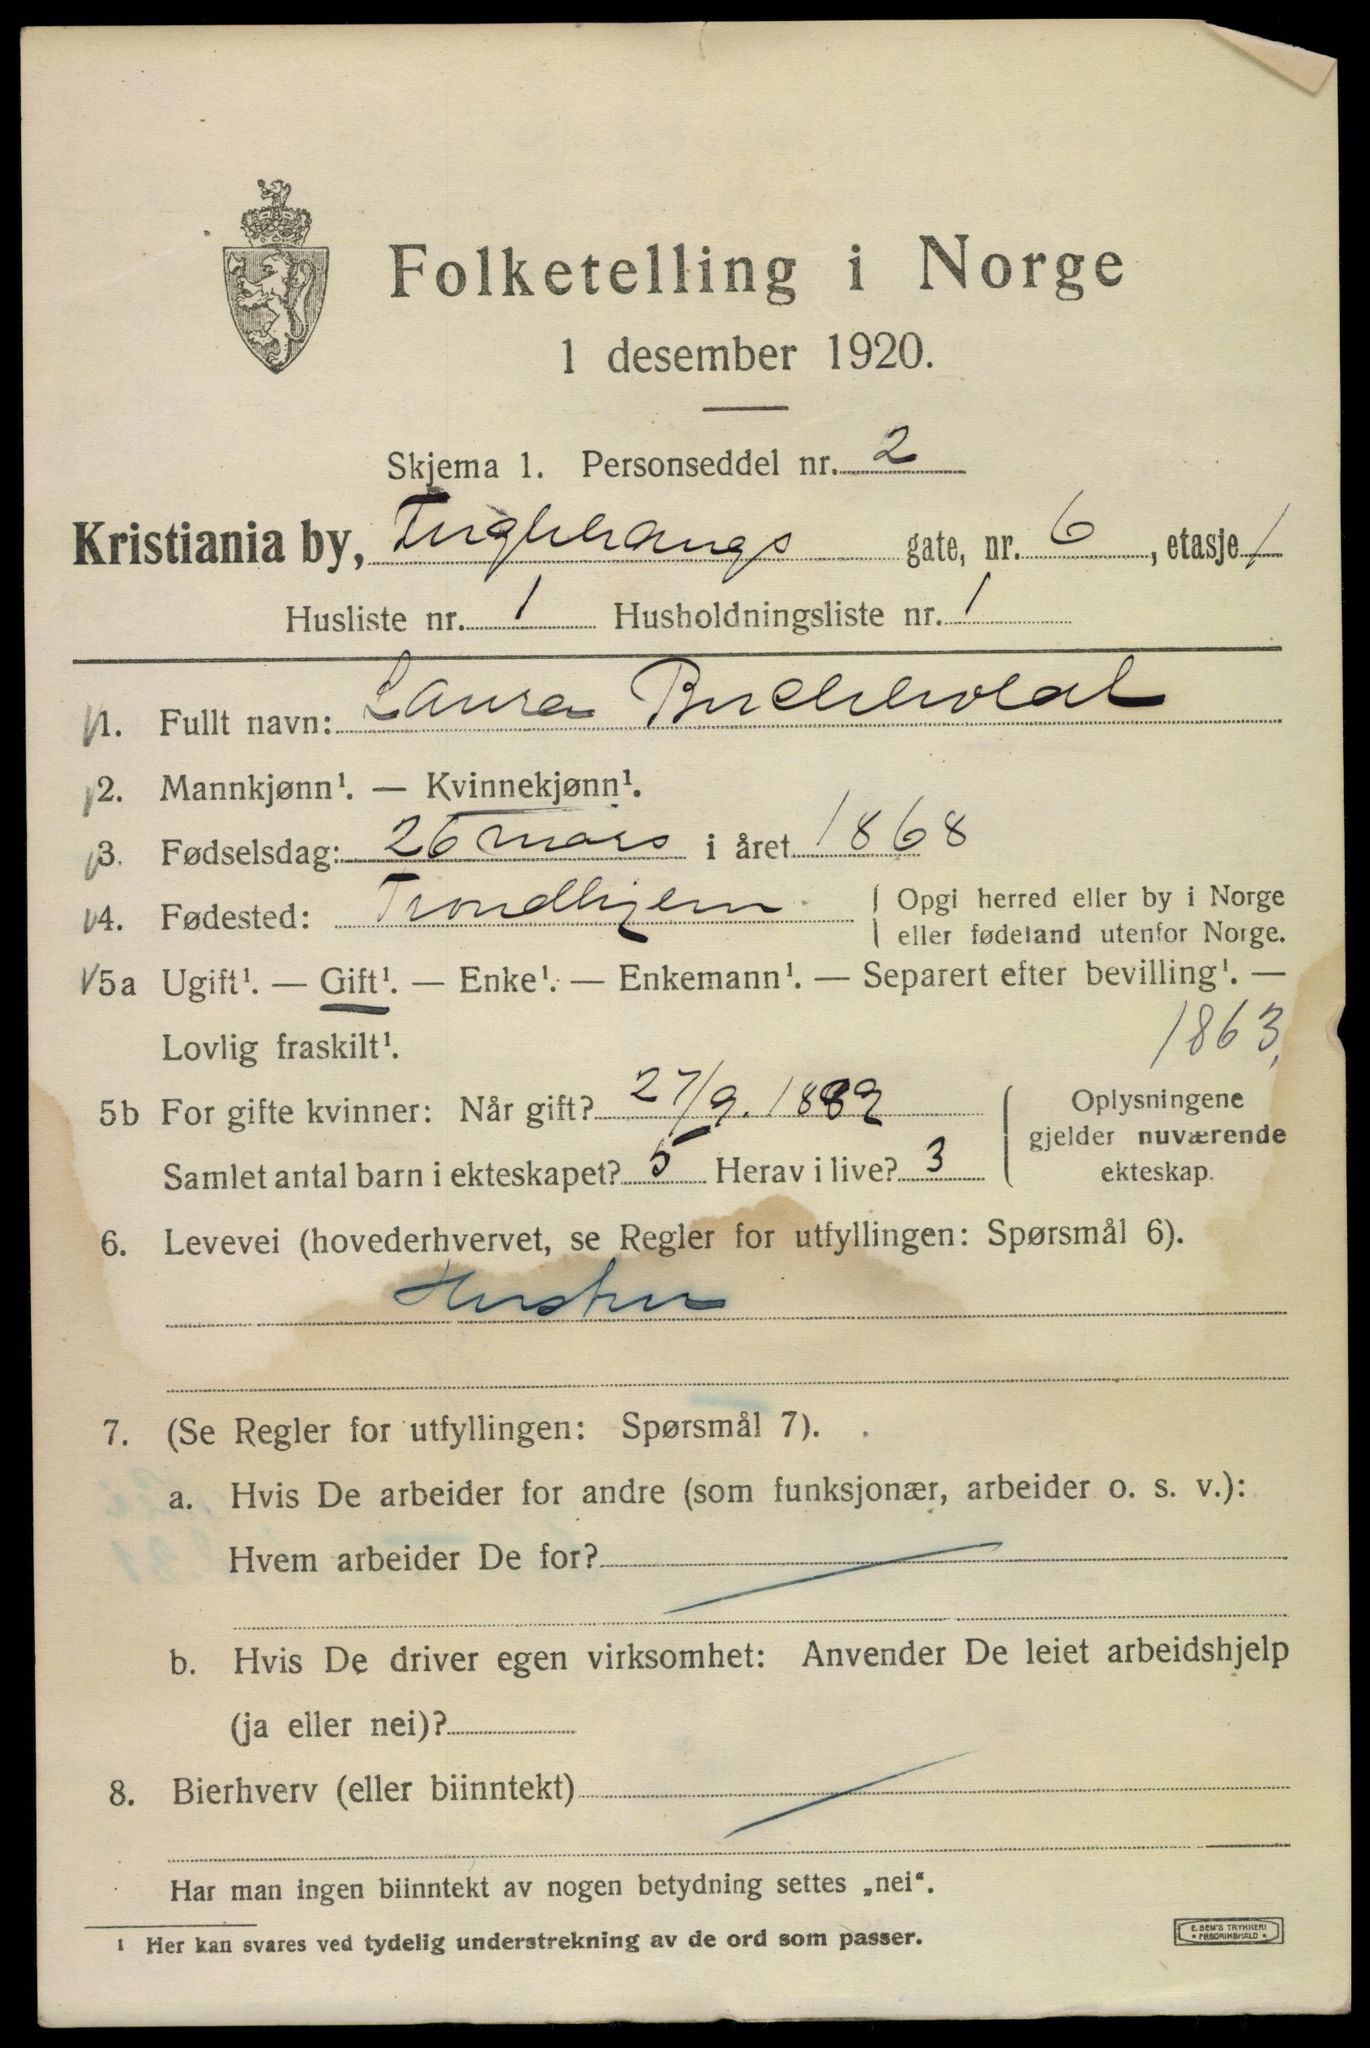 Folketelling i Norge
1 desember 1920.
Skjema 1. Personseddel nr. 2
Kristiania by, Fuglehaugs gate, nr. 6, etasje 1
Husliste nr. 1 Husholdningsliste nr. 1
1. Fullt navn: Laura Buckholdt
2. Mannkjønn¹. — Kvinnekjønn¹.
3. Fødselsdag: 26 mars i året 1868
4. Fødested: Trondhjem Opgi herred eller by i Norge
eller fødeland utenfor Norge.
5a Ugift¹. — Gift¹. — Enke¹. — Enkemann¹. — Separert efter bevilling¹. —
Lovlig fraskilt¹. 1863,
5b For gifte kvinner: Når gift? 27/9. 1889 Oplysningene
gjelder nuværende
Samlet antal barn i ekteskapet? 5 Herav i live? 3 ekteskap.
6. Levevei (hovederhvervet, se Regler for utfyllingen: Spørsmål 6).
Hustru
7. (Se Regler for utfyllingen: Spørsmål 7).
a. Hvis De arbeider for andre (som funksjonær, arbeider o. s. v.):
Hvem arbeider De for?
b. Hvis De driver egen virksomhet: Anvender De leiet arbeidshjelp
(ja eller nei)?
8. Bierhverv (eller biinntekt)
Har man ingen biinntekt av nogen betydning settes „nei“.
¹ Her kan svares ved tydelig understrekning av de ord som passer.
E. SEM'S TRYKKERI
* FREDRIKSHALD *